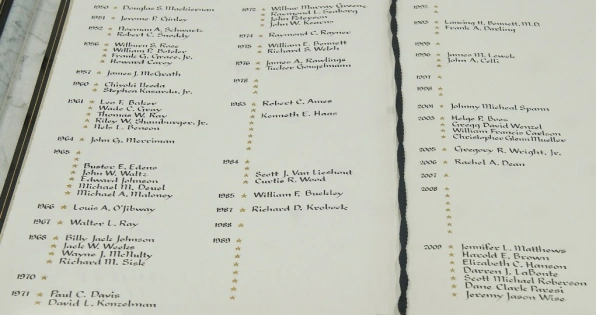 1950 ★ Douglas S. Mackiernan
1951 ★ Jerome P. Ginley
1952 ★ Norman A. Schwartz
★ Robert C. Snoddy
1956 ★ William S. Rose
★ William P. Boteler
★ Frank G. Grace, Jr.
★ Howard Carey
1957 ★ James J. McGrath
1960 ★ Chiyoki Ikeda
★ Stephen Kasarda, Jr.
1961 ★ Leo F. Baker
★ Wade C. Gray
★ Thomas W. Ray
★ Riley W. Shamburger, Jr.
★ Nels L. Benson
1964 ★ John G. Merriman
1965 ★
★ Buster E. Edens
★ John W. Waltz
★ Edward Johnson
★ Michael M. Deuel
★ Michael A. Maloney
1966 ★ Louis A. O'Jibway
1967 ★ Walter L. Ray
1968 ★ Billy Jack Johnson
★ Jack W. Weeks
★ Wayne J. McNulty
★ Richard M. Sisk
1970 ★
1971 ★ Paul C. Davis
★ David L. Konzelman
1972 ★ Wilbur Murray Greene
★ Raymond L. Seaborg
★ John Peterson
★ John W. Kearns
1974 ★ Raymond C. Rayner
1975 ★ William E. Bennett
★ Richard S. Welch
1976 ★ James A. Rawlings
★ Tucker Gougelmann
1978 ★
★
1983 ★ Robert C. Ames
★
★ Kenneth E. Haas
★
★
★
1984 ★
★ Scott J. Van Lieshout
★ Curtis R. Wood
1985 ★ William F. Buckley
1987 ★ Richard D. Krobock
1988 ★
1989 ★
★
★
★
★
★
1993 ★ Lansing H. Bennett, M.D.
★ Frank A. Darling
1995 ★
1996 ★ James M. Lewek
★ John A. Celli
1997 ★
1998 ★
★
2001 ★ Johnny Micheal Spann
2003 ★ Helge P. Boes
★ Gregg David Wenzel
★ William Francis Carlson
★ Christopher Glenn Mueller
2005 ★ Gregory R. Wright, Jr.
2006 ★ Rachel A. Dean
2007 ★
2008 ★
★
★
★
★
★
2009 ★ Jennifer L. Matthews
★ Harold E. Brown
★ Elizabeth C. Hanson
★ Darren J. LaBonte
★ Scott Michael Roberson
★ Dane Clark Paresi
★ Jeremy Jason Wise